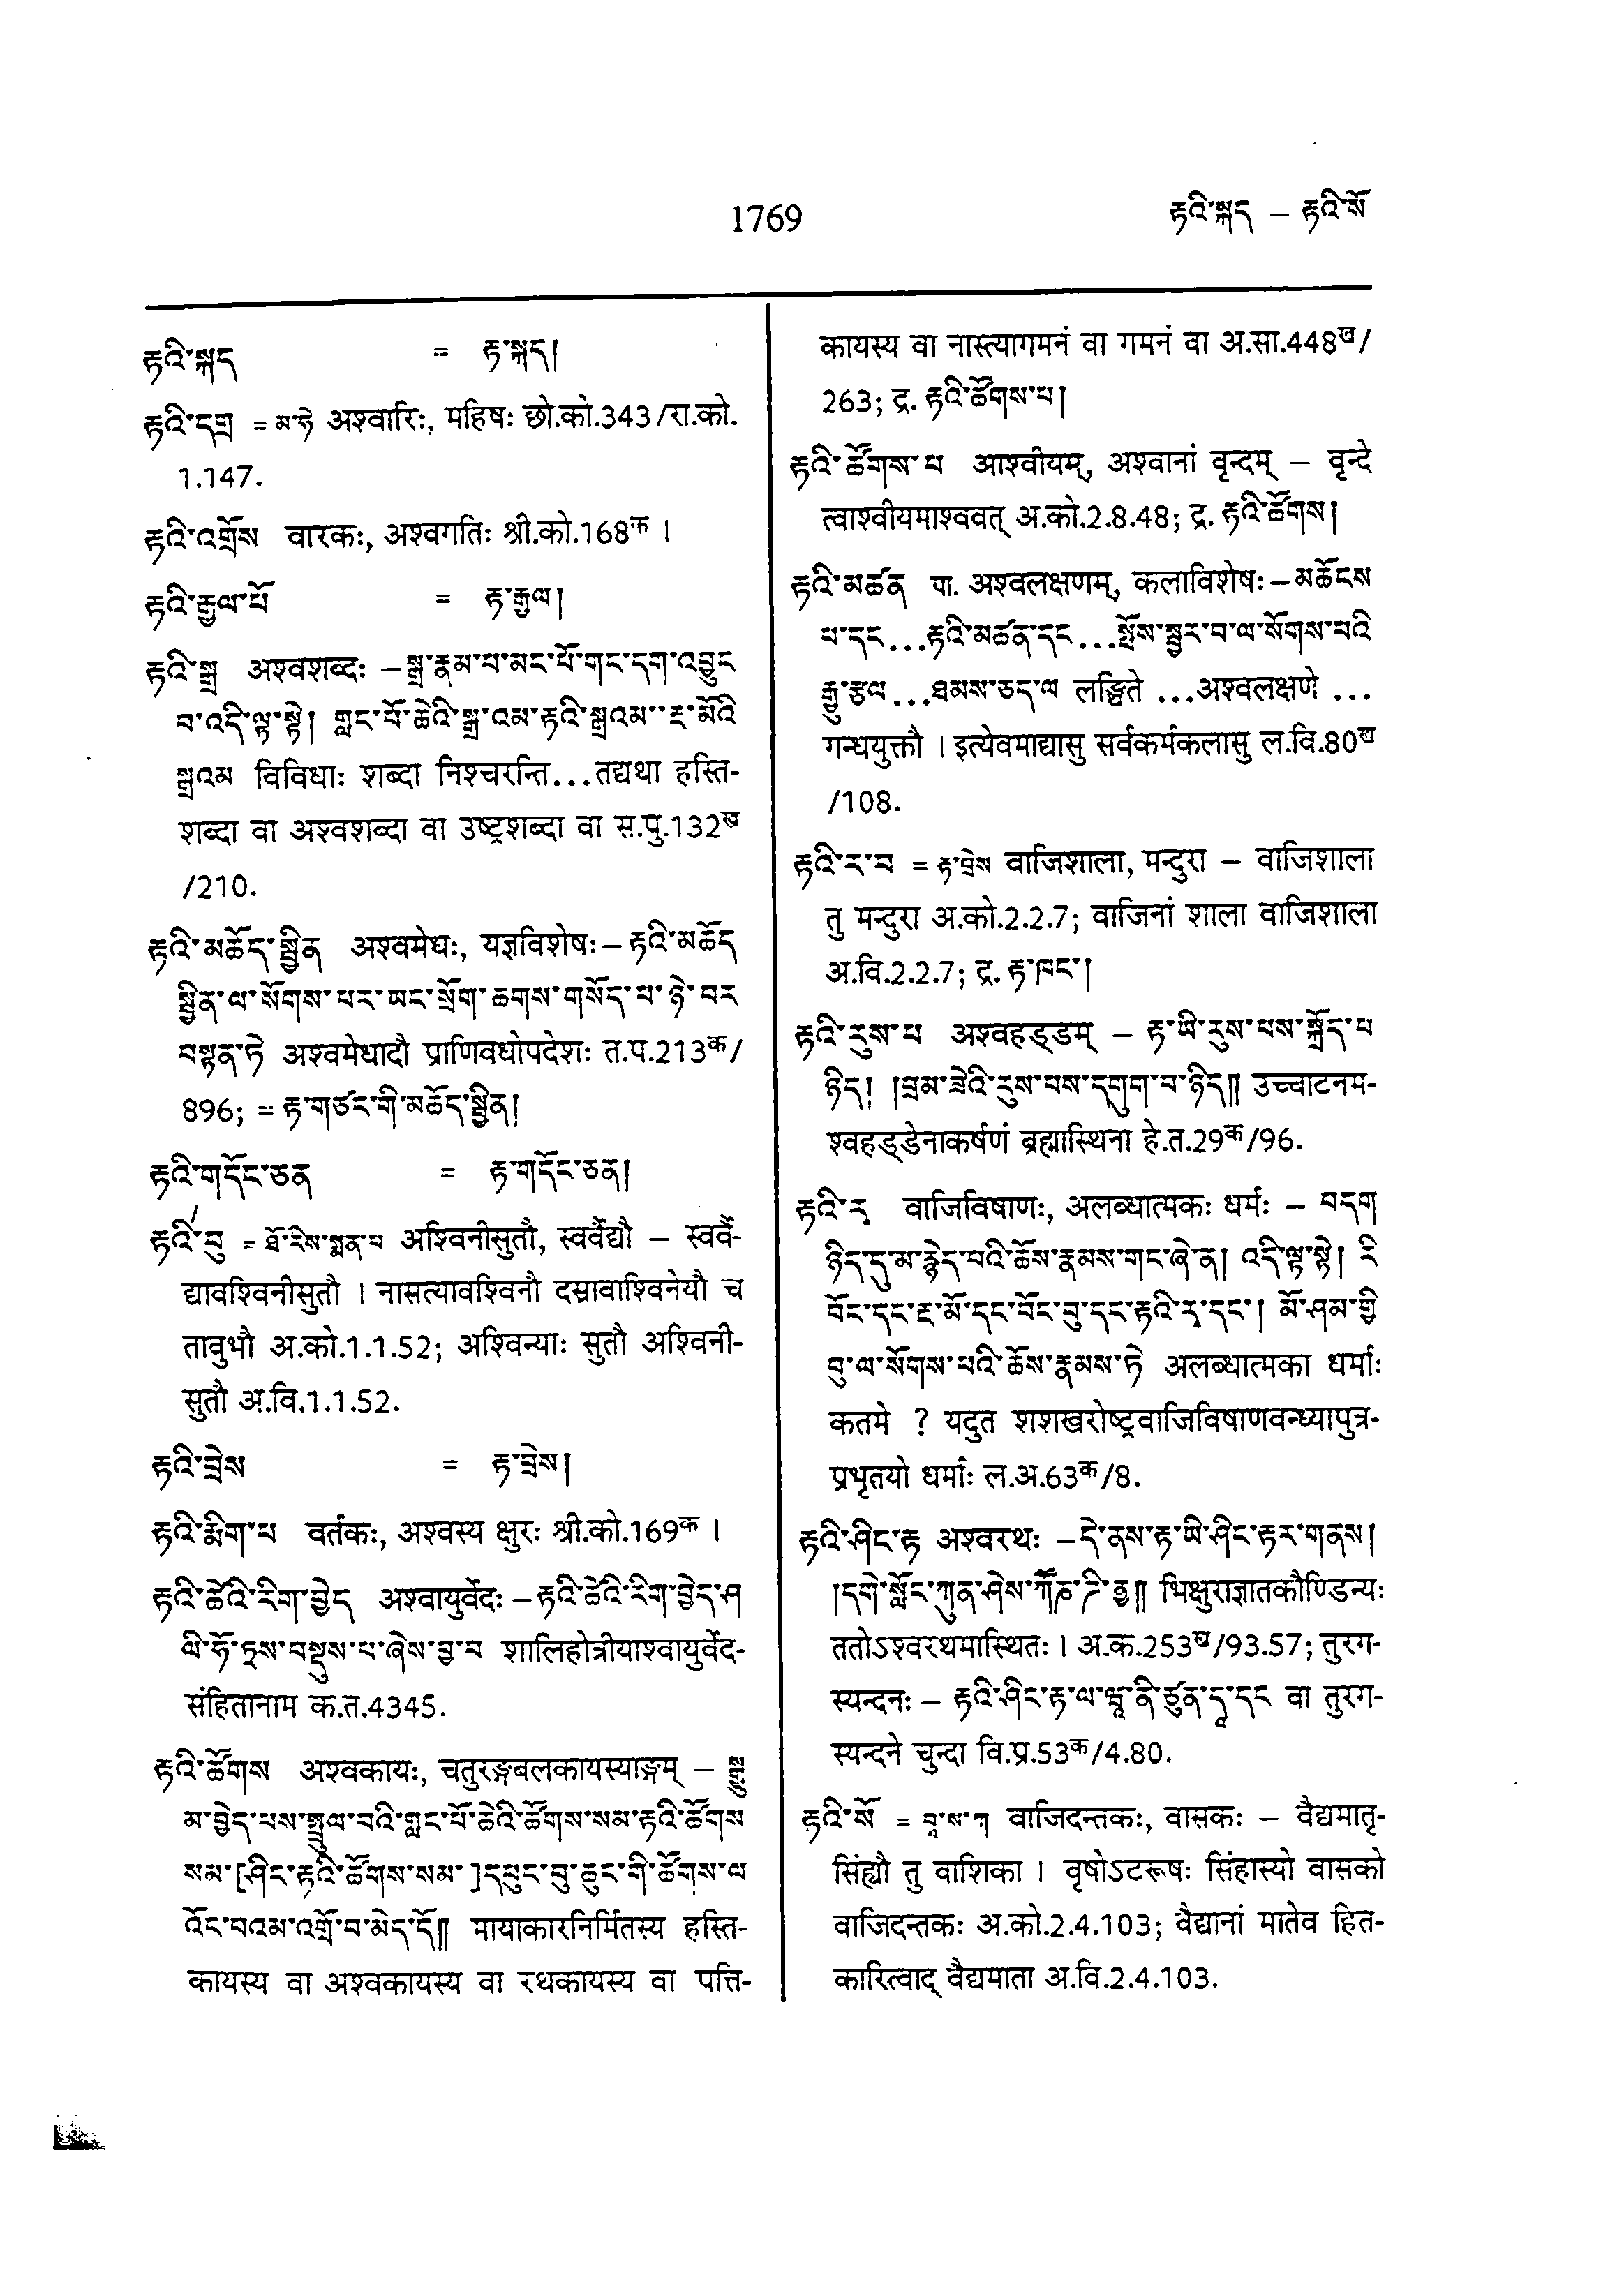 1769
རྟའི་སྐད – རྟའི་སོ
རྟའི་སྐད = རྟ་སྐད།
རྟའི་དགྲ = མ་ཧེ अश्वारिः, महिषः छो.को.343/रा.को.
1.147.
རྟའི་འགྲོས वारकः, अश्वगतिः श्री.को.168क ।
རྟའི་རྒྱལ་པོ = རྟ་རྒྱལ།
རྟའི་སྒྲ अश्वशब्दः – སྒྲ་རྣམ་པ་མང་པོ་གང་དག་འབྱུང
བ་འདི་ལྟ་སྟེ། གླང་པོ་ཆེའི་སྒྲ་འམ་རྟའི་སྒྲའམ་་རྔ་མོའི
སྒྲའམ विविधाः शब्दा निश्चरन्ति...तद्यथा हस्ति-
शब्दा वा अश्वशब्दा वा उष्ट्रशब्दा वा स.पु.132ख
/210.
རྟའི་མཆོད་སྦྱིན अश्वमेधः, यज्ञविशेषः – རྟའི་མཆོད
སྦྱིན་ལ་སོགས་པར་ཡང་སྲོག་ཆགས་གསོད་པ་ཉེ་བར
བསྟན་ཏེ अश्वमेधादौ प्राणिवधोपदेशः त.प.213क/
896; = རྟ་གཙང་གི་མཆོད་སྦྱིན།
རྟའི་གདོང་ཅན = རྟ་གདོང་ཅན།
རྟའི་བུ = ཐོ་རིས་སྨན་པ अश्विनीसुतौ, स्वर्वैद्यौ – स्वर्वै-
द्यावश्विनीसुतौ । नासत्यावश्विनौ दस्रावाश्विनेयौ च
तावुभौ अ.को.1.1.52; अश्विन्याः सुतौ अश्विनी-
सुतौ अ.वि.1.1.52.
རྟའི་བྲེས = རྟ་བྲེས།
རྟའི་རྨིག་པ वर्तकः, अश्वस्य क्षुरः श्री.को.169क ।
རྟའི་ཚེའི་རིག་བྱེད अश्वायुर्वेदः – རྟའི་ཚེའི་རིག་བྱེད་ཤ
ལི་ཧོ་ཏྲས་བསྡུས་པ་ཞེས་བྱ་བ शालिहोत्रीयाश्वायुर्वेद-
संहितानाम क.त.4345.
རྟའི་ཚོགས अश्वकायः, चतुरङ्गबलकायस्याङ्गम् – སྒྱུ
མ་བྱེད་པས་སྤྲུལ་བའི་གླང་པོ་ཆེའི་ཚོགས་སམ་རྟའི་ཚོགས
སམ་[ཤིང་རྟའི་ཚོགས་སམ་]དཔུང་བུ་ཆུང་གི་ཚོགས་ལ
འོང་བའམ་འགྲོ་བ་མེད་དོ༎ मायाकारनिर्मितस्य हस्ति-
कायस्य वा अश्वकायस्य वा रथकायस्य वा पत्ति-
कायस्य वा नास्त्यागमनं वा गमनं वा अ.सा.448ख/
263; द्र. རྟའི་ཚོགས་པ།
རྟའི་ཚོགས་པ आश्वीयम्, अश्वानां वृन्दम् – वृन्दे
त्वाश्वीयमाश्ववत् अ.को.2.8.48; द्र. རྟའི་ཚོགས།
རྟའི་མཚན पा. अश्वलक्षणम्, कलाविशेषः – མཆོངས
པ་དང...རྟའི་མཚན་དང...སྤོས་སྦྱར་བ་ལ་སོགས་པའི
རྒྱུ་རྩལ...ཐམས་ཅད་ལ लङ्घिते ...अश्वलक्षणे ...
गन्धयुक्तौ । इत्येवमाद्यासु सर्वकर्मकलासु ल.वि.80ख
/108.
རྟའི་ར་བ = རྟ་བྲེས वाजिशाला, मन्दुरा – वाजिशाला
तु मन्दुरा अ.को.2.2.7; वाजिनां शाला वाजिशाला
अ.वि.2.2.7; द्र. རྟ་ཁང་།
རྟའི་རུས་པ अश्वहड्डम् – རྟ་ཡི་རུས་པས་སྐྲོད་པ
ཉིད། །བྲམ་ཟེའི་རུས་པས་དགུག་པ་ཉིད༎ उच्चाटनम-
श्वहड्डेनाकर्षणं ब्रह्मास्थिना हे.त.29क/96.
རྟའི་རྭ वाजिविषाणः, अलब्धात्मकः धर्मः – བདག
ཉིད་དུ་མ་རྙེད་པའི་ཆོས་རྣམས་གང་ཞེ་ན། འདི་ལྟ་སྟེ། རི
བོང་དང་རྔ་མོ་དང་བོང་བུ་དང་རྟའི་རྭ་དང་། མོ་ཤམ་གྱི
བུ་ལ་སོགས་པའི་ཆོས་རྣམས་ཏེ अलब्धात्मका धर्माः
कतमे ? यदुत शशखरोष्ट्रवाजिविषाणवन्ध्यापुत्र-
प्रभृतयो धर्माः ल.अ.63क/8.
རྟའི་ཤིང་རྟ अश्वरथः – དེ་ནས་རྟ་ཡི་ཤིང་རྟར་གནས།
།དགེ་སློང་ཀུན་ཤེས་ཀཽཎ་ཌི་ནྱ༎ भिक्षुराज्ञातकौण्डिन्यः
ततोऽश्वरथमास्थितः । अ.क.253ख/93.57; तुरग-
स्यन्दनः – རྟའི་ཤིང་རྟ་ལ་ཨཱ་ནི་ཙུན་དཱ་དང वा तुरग-
स्यन्दने चुन्दा वि.प्र.53क/4.80.
རྟའི་སོ = བཱ་ས་ཀ वाजिदन्तकः, वासकः – वैद्यमातृ-
सिंह्यौ तु वाशिका । वृषोऽटरूषः सिंहास्यो वासको
वाजिदन्तकः अ.को.2.4.103; वैद्यानां मातेव हित-
कारित्वाद् वैद्यमाता अ.वि.2.4.103.